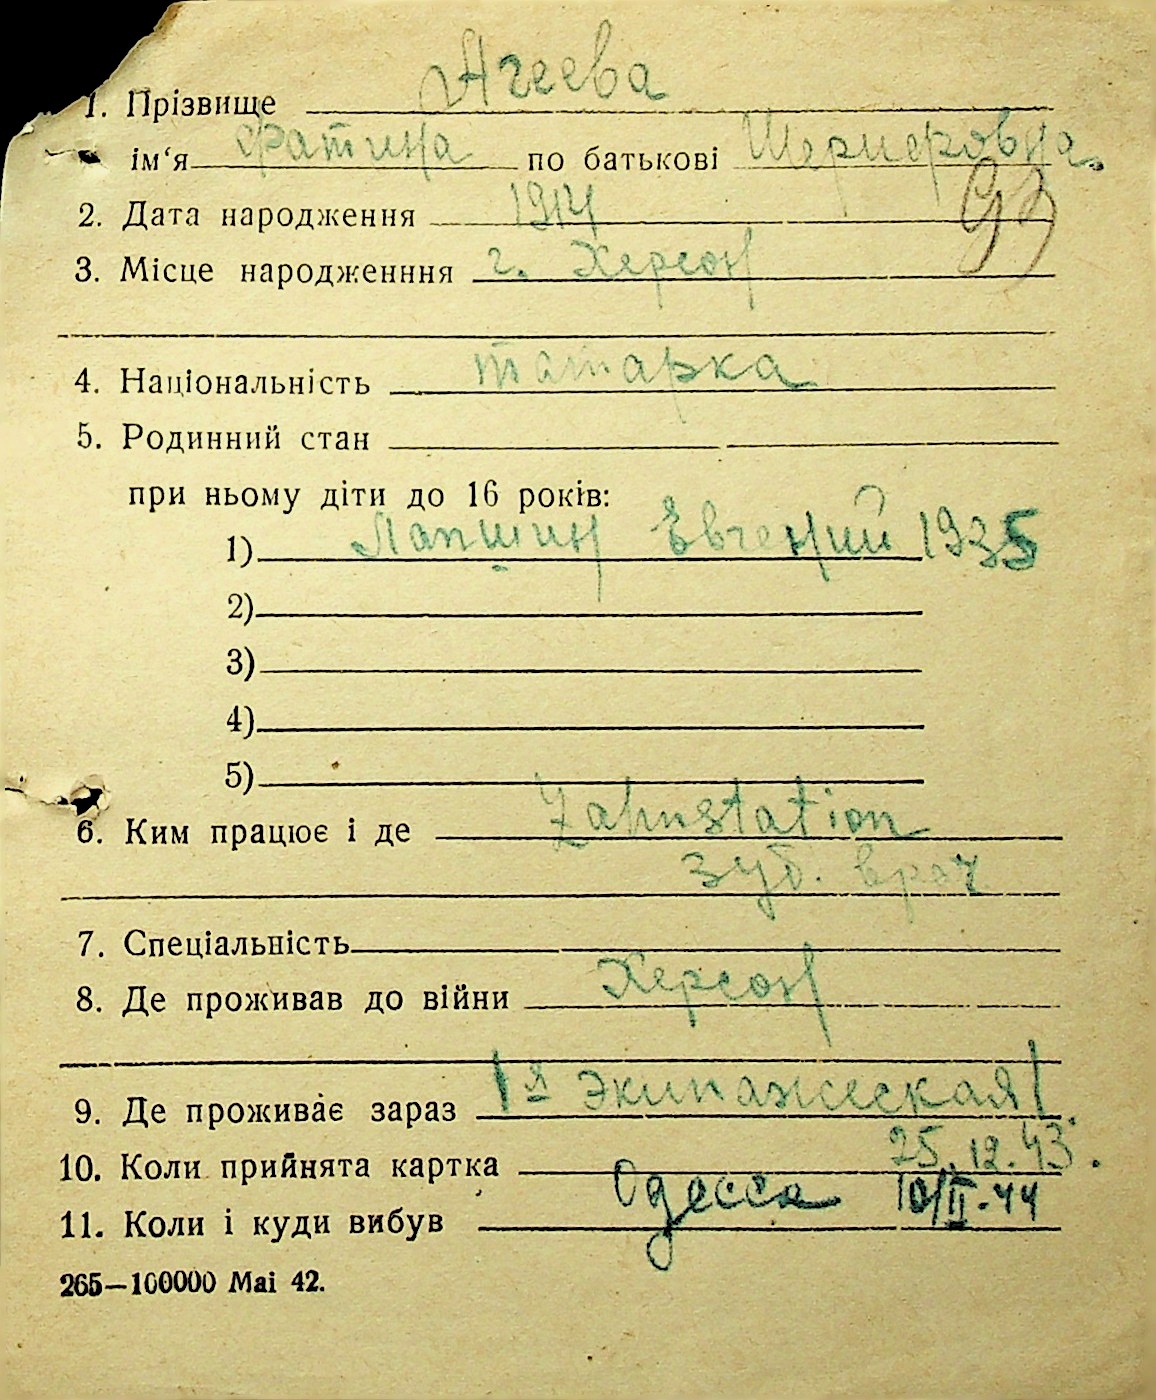 1. Прізвище Агеева
ім‘я Фатина по батькові
2. Дата народження 1914
3. Місце народженння г. Херсон
4. Національність татарка
5. Родинний стан
при ньому діти до 16 років:
1) Лапшин Евгений 1935
2)
3)
4)
5)
6. Ким працює і де Zahnstation
зуб. врач
7. Спеціальність
8. Де проживав до війни Херсон
9. Де проживає зараз 1я Экипажеская 1
10. Коли прийнята картка 25.12.43.
11. Коли і куди вибув Одесса 10/II-44
265—100000 Mai 42.